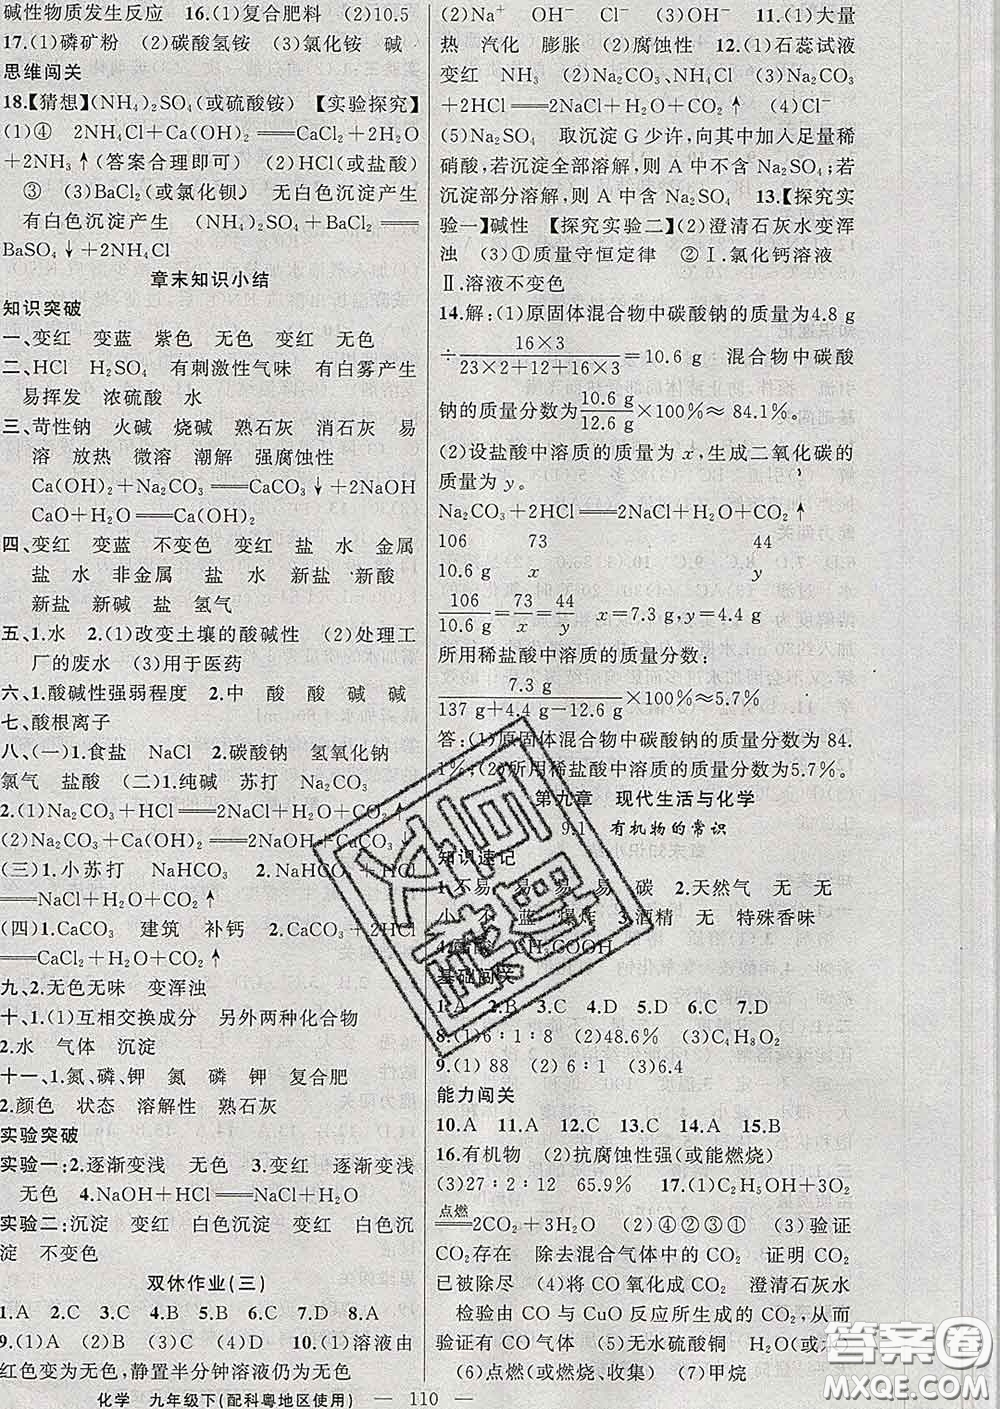 碱性物质发生反应 16.(1)复合肥料 (2)10.5
17.(1)磷矿粉 (2)碳酸氢铵 (3)氯化铵 碱
思维闯关
18.【猜想】(NH₄)₂SO₄(或硫酸铵) 【实验探究】
(1)④ 2NH₄Cl+Ca(OH)₂══CaCl₂+2H₂O
+2NH₃↑(答案合理即可) (2)HCl(或盐酸)
③ (3)BaCl₂(或氯化钡) 无白色沉淀产生
有白色沉淀产生 (NH₄)₂SO₄+BaCl₂══
BaSO₄↓+2NH₄Cl
章末知识小结
知识突破
一、变红 变蓝 紫色 无色 变红 无色
二、HCl H₂SO₄ 有刺激性气味 有白雾产生
易挥发 浓硫酸 水
三、苛性钠 火碱 烧碱 熟石灰 消石灰 易
溶 放热 微溶 潮解 强腐蚀性
Ca(OH)₂+Na₂CO₃══CaCO₃↓+2NaOH
CaO+H₂O══Ca(OH)₂
四、变红 变蓝 不变色 变红 盐 水 金属
盐 水 非金属 盐 水 新盐 新酸
新盐 新碱 盐 氢气
五、1.水 2.(1)改变土壤的酸碱性 (2)处理工
厂的废水 (3)用于医药
六、1.酸碱性强弱程度 2.中 酸 酸 碱 碱
七、酸根离子
八、(一)1.食盐 NaCl 2.碳酸钠 氢氧化钠
氯气 盐酸 (二)1.纯碱 苏打 Na₂CO₃
2.(1)Na₂CO₃+HCl══2NaCl+H₂O+CO₂↑
(2)Na₂CO₃+Ca(OH)₂══2NaOH+CaCO₃↓
(三)1.小苏打 NaHCO₃ 2.NaHCO₃+HCl
══NaCl+H₂O+CO₂↑
(四)1.CaCO₃ 建筑 补钙 2.CaCO₃+2HCl
══CaCl₂+H₂O+CO₂↑
九、2.无色无味 变浑浊
十、1.(1)互相交换成分 另外两种化合物
2.水 气体 沉淀
十一、1.氮、磷、钾 氮 磷 钾 复合肥
2.颜色 状态 溶解性 熟石灰
实验突破
实验一:2.逐渐变浅 无色 3.变红 逐渐变浅
无色 4.NaOH+HCl══NaCl+H₂O
实验二:沉淀 变红 白色沉淀 变红 白色沉
淀 不变色
双休作业(三)
1.A 2.C 3.C 4.B 5.B 6.C 7.D 8.A
9.(1)A (2)B (3)C (4)D 10.(1)溶液由
红色变为无色,静置半分钟溶液仍为无色
化学 九年级下(配科粤地区使用) — 110 —
(2)Na⁺ OH⁻ Cl⁻ (3)OH⁻ 11.(1)大量
热 汽化 膨胀 (2)腐蚀性 12.(1)石蕊试液
变红 NH₃ (2)Na₂CO₃、NH₄Cl (3)Na₂CO₃
+2HCl══2NaCl+H₂O+CO₂↑ (4)Cl⁻
(5)Na₂SO₄ 取沉淀 G 少许,向其中加入足量稀
硝酸,若沉淀全部溶解,则 A 中不含 Na₂SO₄;若
沉淀部分溶解,则 A 中含 Na₂SO₄ 13.【探究实
验一】碱性 【探究实验二】(2)澄清石灰水变浑
浊 (3)①质量守恒定律 ②Ⅰ.氯化钙溶液
Ⅱ.溶液不变色
14.解:(1)原固体混合物中碳酸钠的质量为4.8 g
÷16×3/(23×2+12+16×3)=10.6 g 混合物中碳酸
钠的质量分数为10.6 g/12.6 g×100%≈84.1%。
(2)设盐酸中溶质的质量为 x,生成二氧化碳的
质量为 y。
Na₂CO₃+2HCl══2NaCl+H₂O+CO₂↑
106 73 44
10.6 g x y
106/10.6 g=73/x=44/y x=7.3 g,y=4.4 g
所用稀盐酸中溶质的质量分数:
7.3 g/(137 g+4.4 g-12.6 g)×100%≈5.7%
答:(1)原固体混合物中碳酸钠的质量分数为84.
1%;(2)所用稀盐酸中溶质的质量分数为5.7%。
第九章 现代生活与化学
9.1 有机物的常识
知识速记
1.不易 易 易 易 碳 2.天然气 无 无
小 不 蓝 爆炸 3.酒精 无 特殊香味
4. CH₃COOH
基础闯关
1.A 2.B 3.C 4.D 5.C 6.C 7.D
8.(1)6∶1∶8 (2)48.6% (3)C₄H₈O₂
9.(1)88 (2)6∶1 (3)6.4
能力闯关
10.A 11.A 12.C 13.C 14.A 15.B
16.有机物 (2)抗腐蚀性强(或能燃烧)
(3)27∶2∶12 65.9% 17.(1)C₂H₅OH+3O₂
点燃══2CO₂+3H₂O (2)④②③① (3)验证
CO₂存在 除去混合气体中的 CO₂ 证明 CO₂
已被除尽 (4)将 CO 氧化成 CO₂ 澄清石灰水
检验由 CO 与 CuO 反应所生成的 CO₂,从而
验证有 CO 气体 (5)无水硫酸铜 H₂O(或水
(6)点燃(或燃烧、收集) (7)甲烷
答案圈